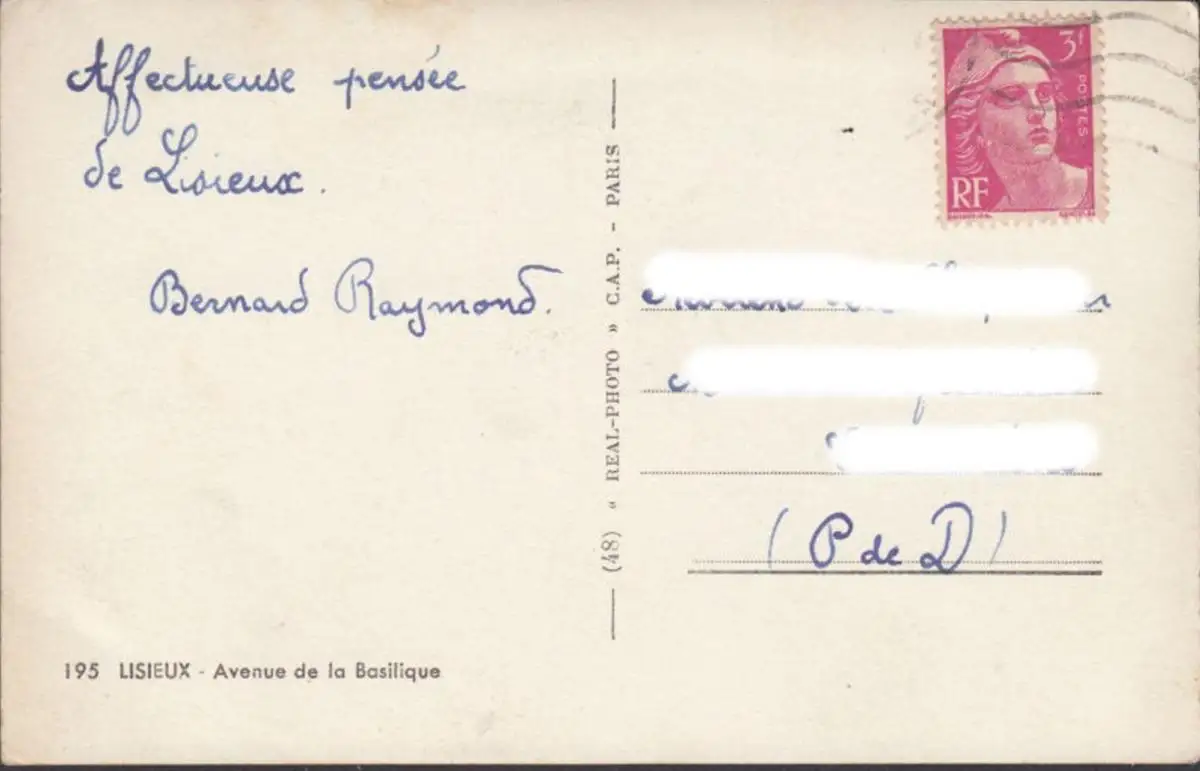 Affectueuse pensée
de Lisieux.
Bernard Raymond.
195 LISIEUX - Avenue de la Basilique
(48) « REAL-PHOTO » C.A.P. - PARIS
3f
POSTES
RF
(P de D)